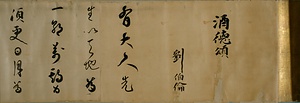 酒德頌
劉伯倫
有大人先
生以天地為
一朝萬期為
須臾日月為